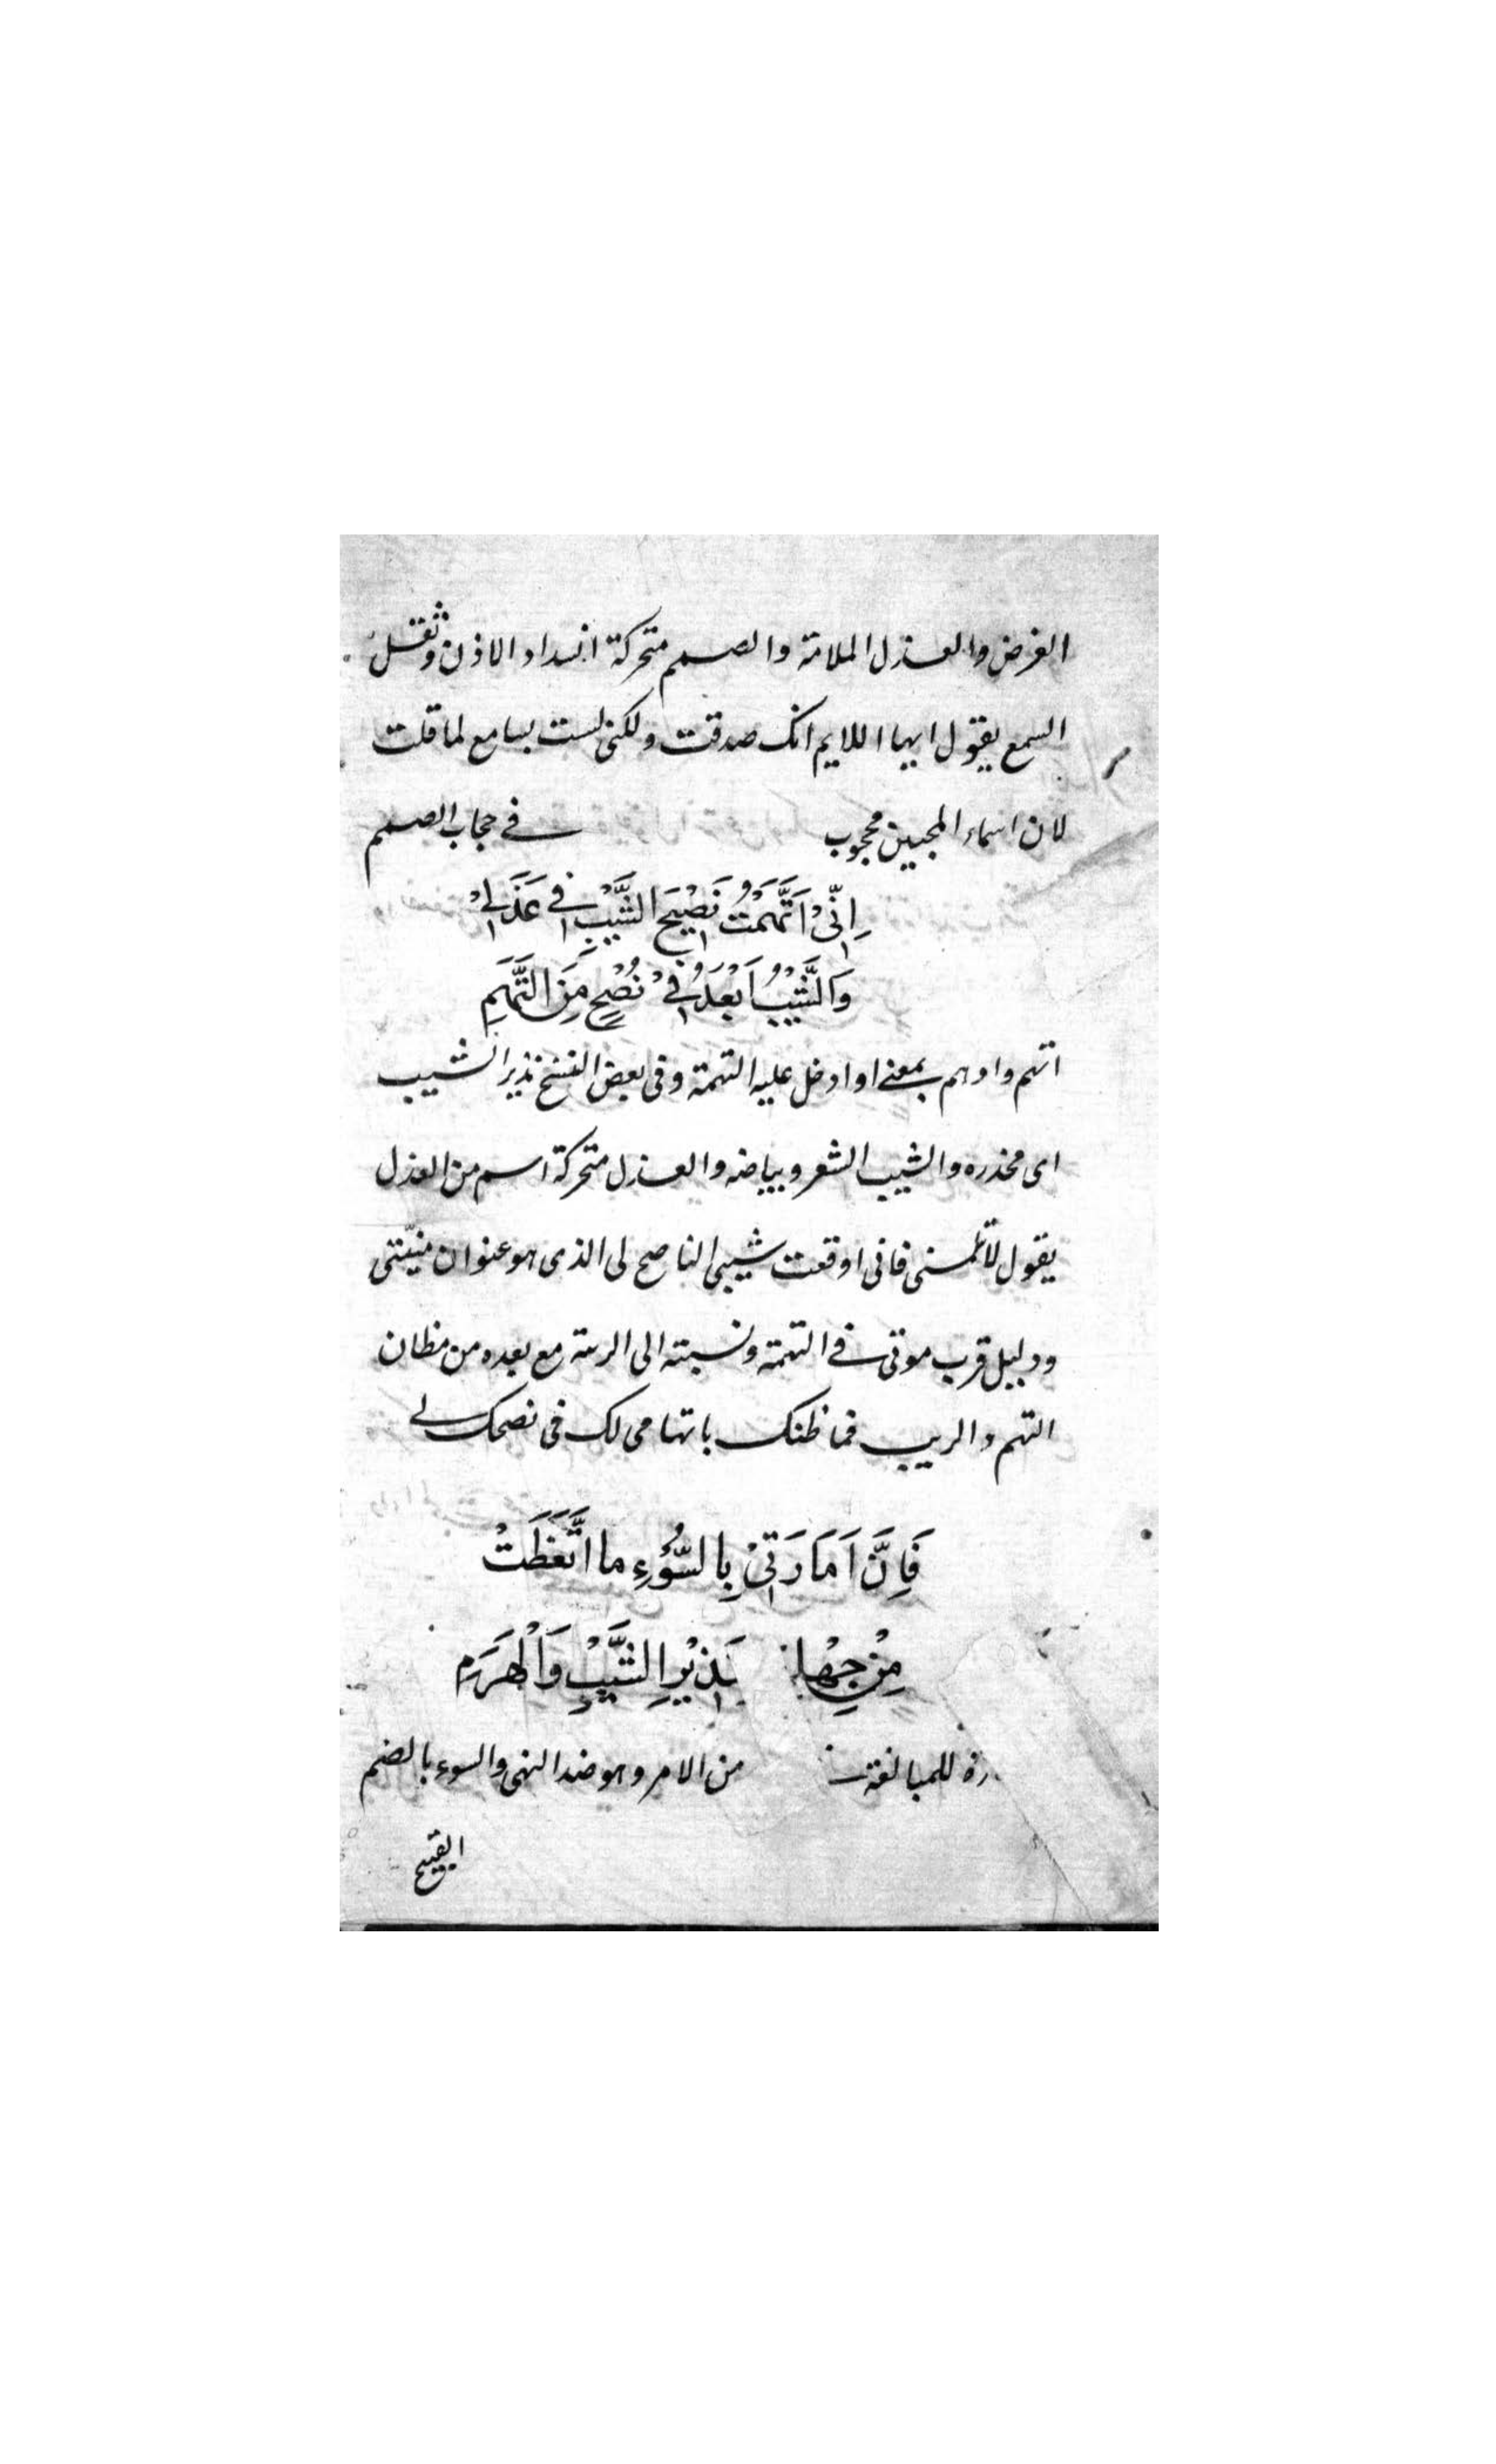 الغرض والعذل الملامة والصمم متحركة انسداد الاذن وثقل
السمع يقول ايها اللايم انك صدقت ولكنى لست بسامع لما قلت
لان اسماء المحبين محجوب في حجاب الصمم
اِنِّىْ اتَّهَمْتُ نَصِيْحَ الشَّيْبِ فِي عَذَلِيْ
وَالشَّيْبُ اَبْعَدُ فِيْ نُصْحٍ مِنَ التُّهَمِ
اتهم واوهم بمعنى اوادخل عليه التهمة وفى بعض النسخ نذير الشيب
اى محذره والشيب الشعر وبياضه والعذل متحركة اسم من العذل
يقول لا تلمنى فانى اوقعت شيبى الناصح لى الذى هو عنوان منيّتى
ودليل قرب موتى فے التهمة ونسبته الى الريبة مع بعده من مظان
التهم والريب فما ظنك باتهامى لك فى نصحك لے
فَاِنَّ اَمَارَتِىْ بِالسُّوْءِ ما اتَّعَظَتْ
مِنْ جَهْلِها بِنَذِيْرِ الشَّيْبِ وَالْهَرَمِ
رة للمبالغة من الامر وهو ضد النهى والسوء بالضم
القبيح